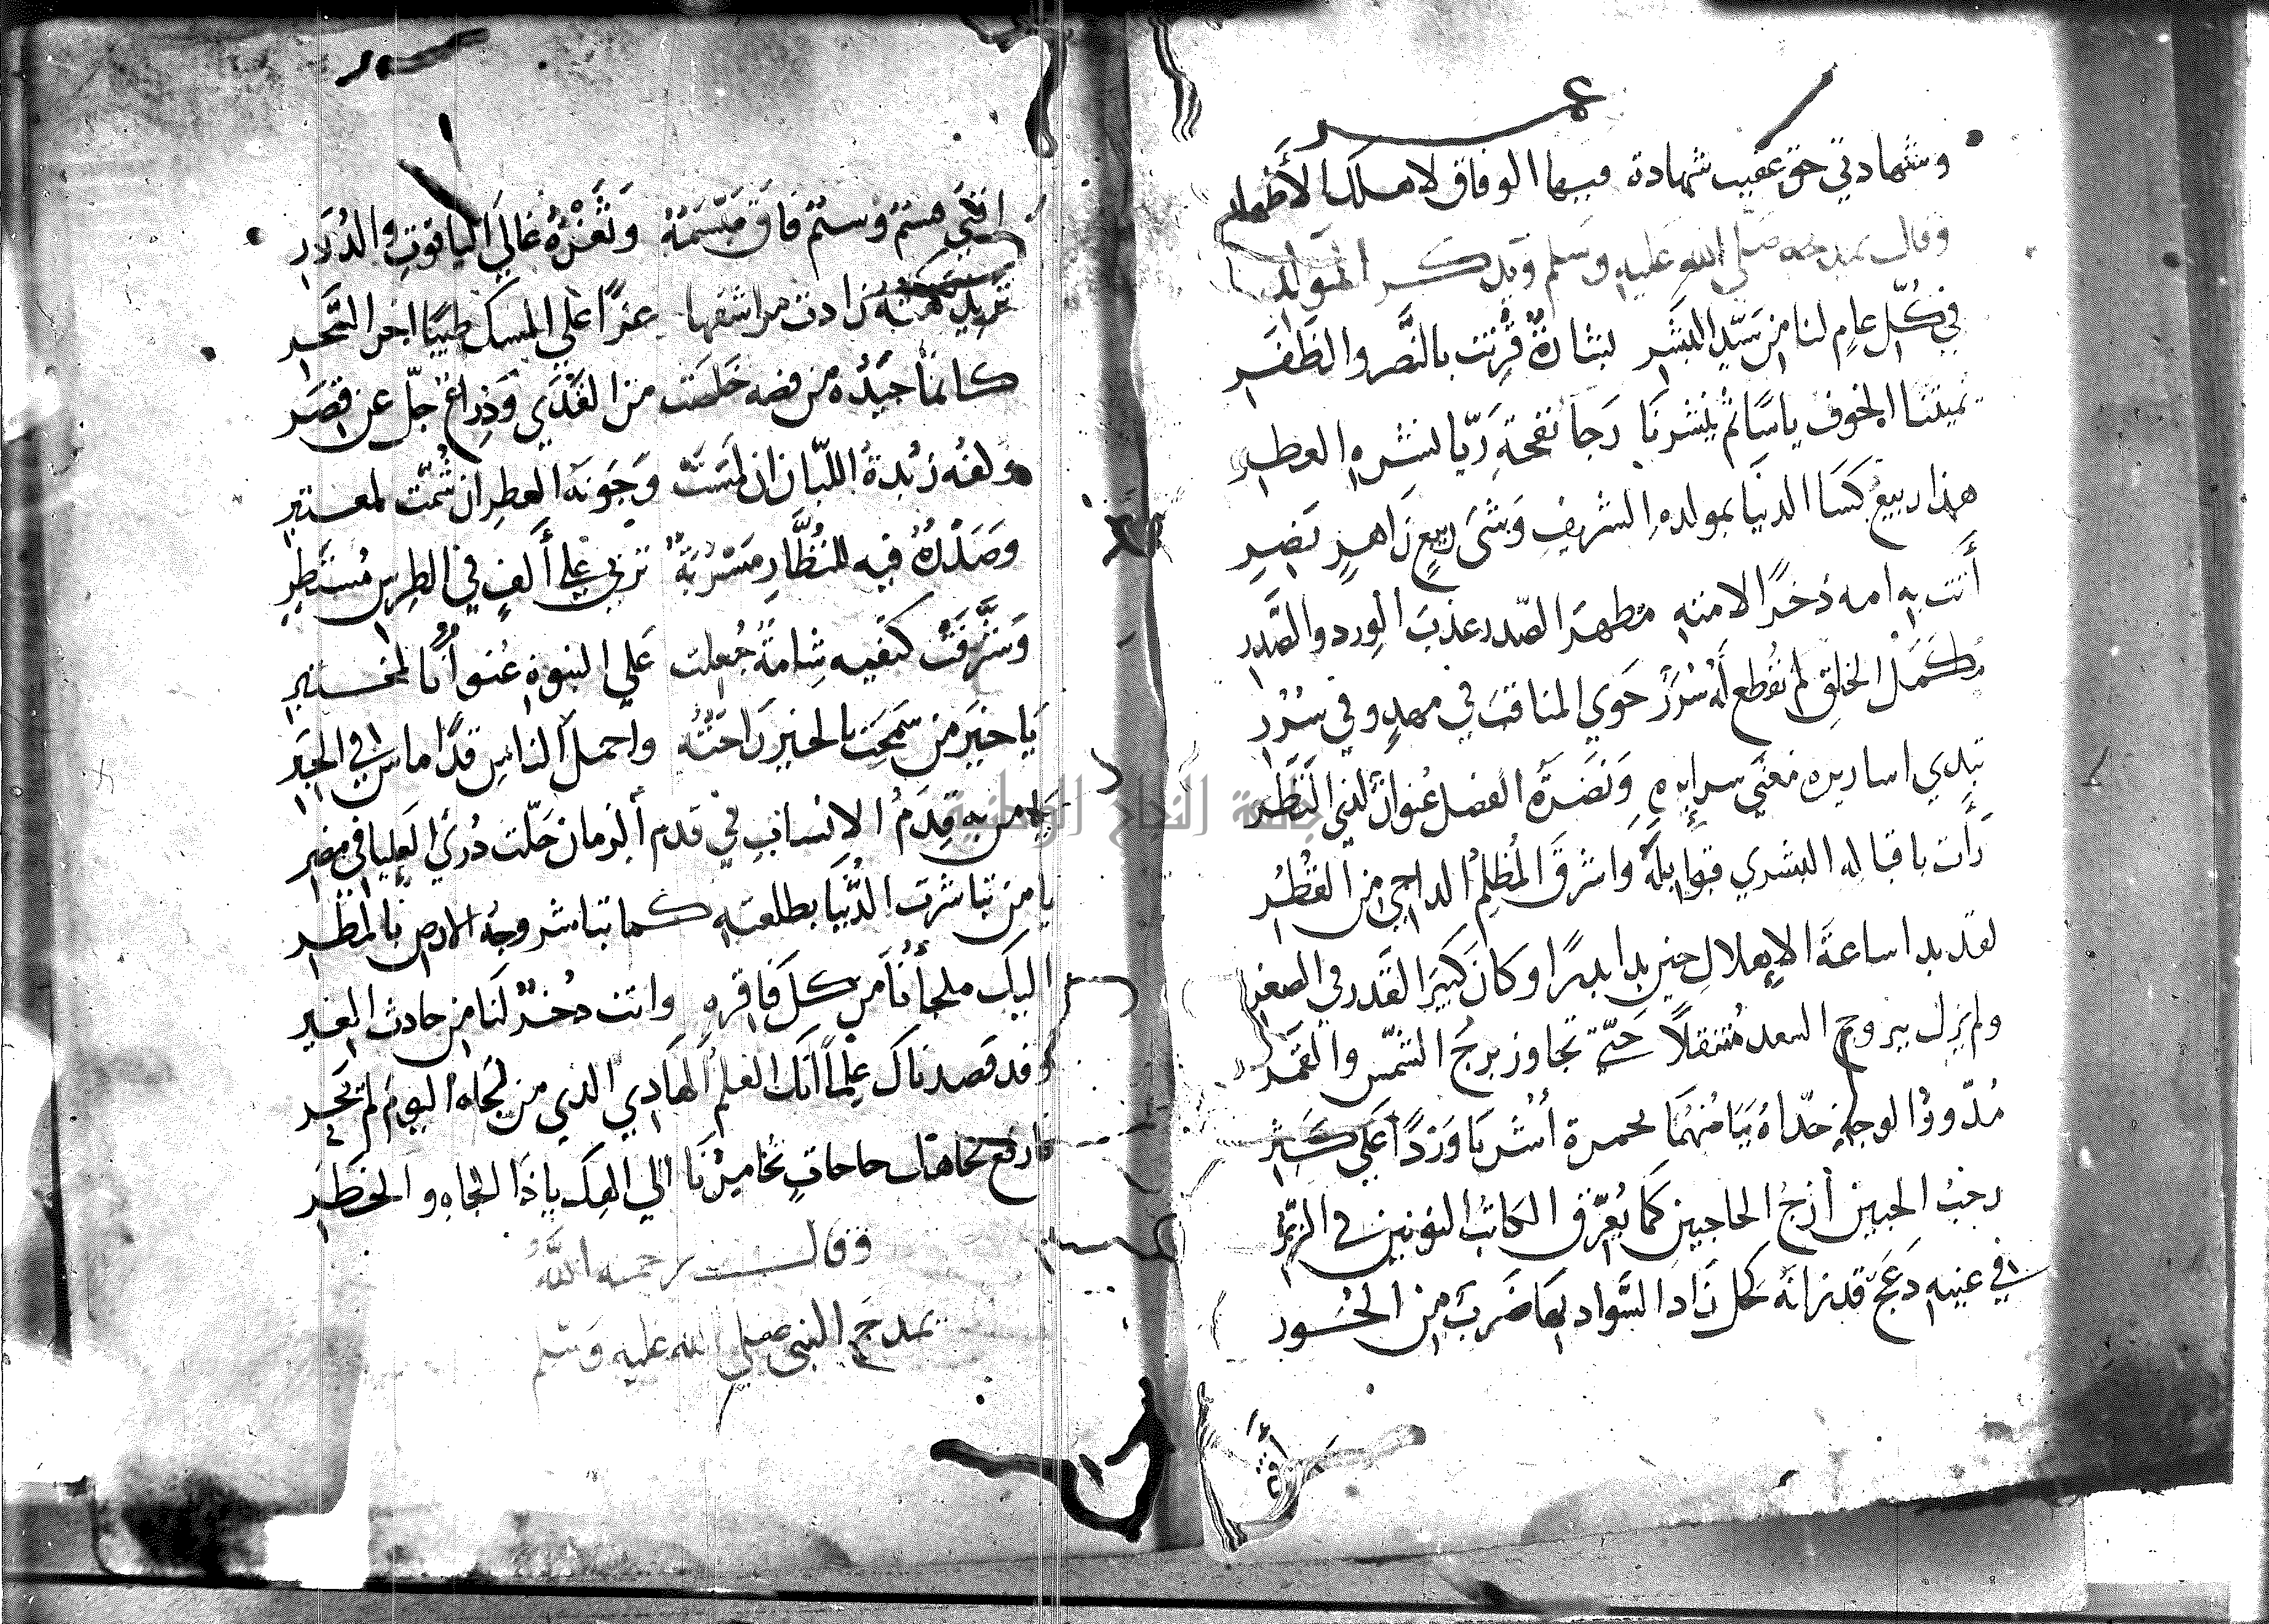 عمر
وشهادتي حق عقيب شهادة فيها الوفاق لاهلك الأطهار
وقال يمدحه صلى الله عليه وسلم ويذكر المولد
في كُلّ عامٍ لنا من سَيّد البَشَرِ بشارةٌ قُرِنَت بالنَّصر والظَفَرِ
يميتنا الخوف ياسًا ثم ينشرنَا رَجا نفحةِ رَيّا نشرِه العطِر
هذا ربيع كَسَا الدنيَا بمولدهِ الشريفِ وَشىَ ربيعٍ زاهرٍ نَضِرِ
أتت به امه ذخرًا لامته مطهرَ الصّدر عذبَ الوِرد والصَّدر
مكمّل الخلقِ لم تُقطع لهُ سُرَرٌ حَوي المناقبَ في مهدٍ وفي سُرُر
تبدي اساريره معنَي سرايره وَنَضرَةُ الفضل عُنوانٌ لذي النَظَر
رَأت باقباله البشري قوابلهُ وَاشرقَ المُظلِمُ الداجي من القُطُر
لقد بدا ساعةَ الإهلالِ حين بدا بدرًا وكان كبيرَ القَدر في الصغر
ولم يزل ببروج السعد مُنتقلاً حَتّي تجاوز برجَ الشمّس والقمَر
مُدّورُ الوجهِ خدّاهُ بيَاضُهُمَا بحمرة أُشربَا وَردًا عَلي كَثَر
رحبُ الجبين أزجُ الحاجبين كمَا يُعرّق الكاتبُ النونين في الزبُر
في عينه دَعَجٌ قد زانهُ كَحَل زَادَ السَّواد بهَا ضَربٌ من الحُسور
أقنَي
اقنَي هشمّ وسنمٌ فاقَ مَبسَمَهُ وَثَغرُهُ غالي الياقوتِ والدُرَر
زادت مراشفها عزًا علي المسك طيبًا اخر السَّحر
كانما جيدُه من فضه خَلصَت من القَذَي وَذِراعٌ جلّ عن قصَر
وكفه زُبدةُ اللبّان ان لمَسَت وَجَونَه العطرِ ان شُمَّت لمعتبر
وَصَدرُهُ فيه للنُظَّارِ مَسرُبَةٌ تربي علي أَلفٍ في الطِرس مُستَطِر
وَشَرَّفَت كتفيه شِامةٌ جُعلت عَلي النبوةِ عُنوانًا لمختبرِ
يَا خَيرَ من سَمِحَت بالخير رَاحَتُهُ واجملَ الناسِ قدًا ماس في الحِبَر
يا من بهِ قِدَمُ الإنسانِ في قدم الزمان حَلّت ذُريَ العَليا في مضر
يا من تباشرت الدُّنيَا بطلعته كما تباشر وجهُ الارضِ بالمَطَر
اليكَ ملجأُنَا مِن كلّ فاقرهٍ وانت ذُخرٌ لنَا من حادث الغير
وقد قَصدناك عِلمًا انّك العلمُ الهَادي الذي من نحَاهُ اليومَ لم يَحُر
فارفع بجاهك حاجاتٍ تخامرُنَا الي الهك يا ذَا الجَاهِ والخَطَر
وقال رحمه اللهُ
يمدحَ النبي صلي الله عليه وَسَلم
جامعة النجاح الوطنية